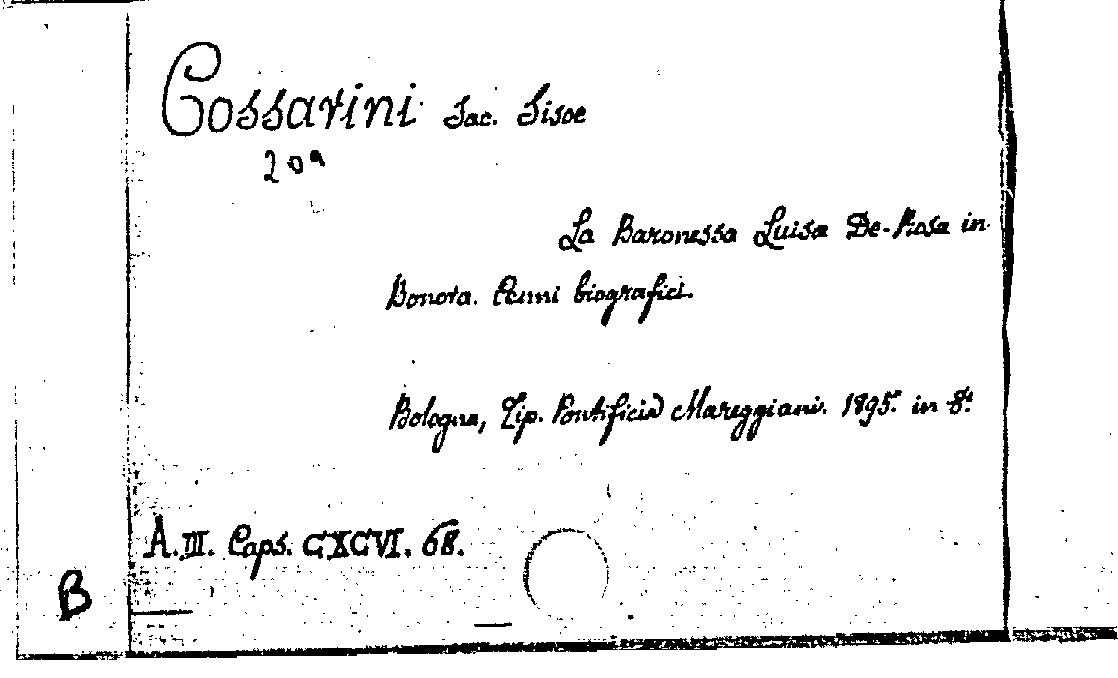 Cossarini Sac. Sisoe
20ª
La Baronessa Luisa De-Rosa in
Bonora. Cenni biografici.
Bologna, Tip. Pontificia Mareggiani. 1895. in 8.º
A.III. Caps. CXCVI. 68.
B